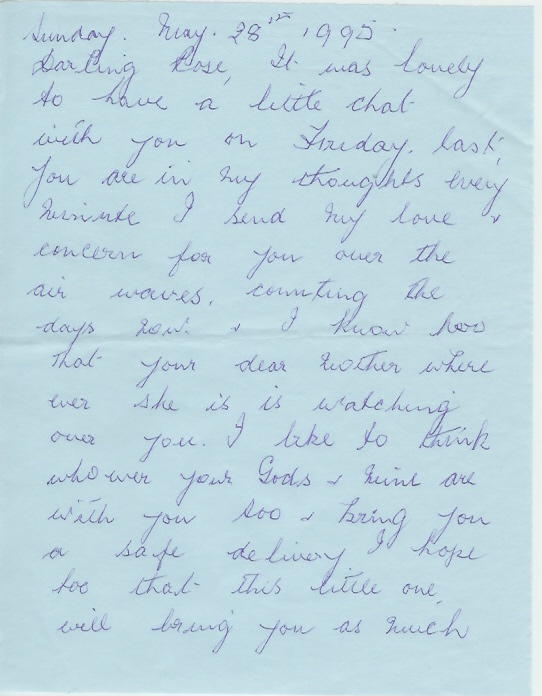 Sunday. May. 28th 1995.
Darling Rose, It was lovely
to have a little chat
with you on Friday. last,
you are in my thoughts every
minute I send my love &
concern for you over the
air waves, counting the
days now. & I know too
that your dear Mother where
ever she is is watching
over you. I like to think
whoever your Gods & mine are
with you too & bring you
a safe delivery I hope
too that this little one
will bring you as much